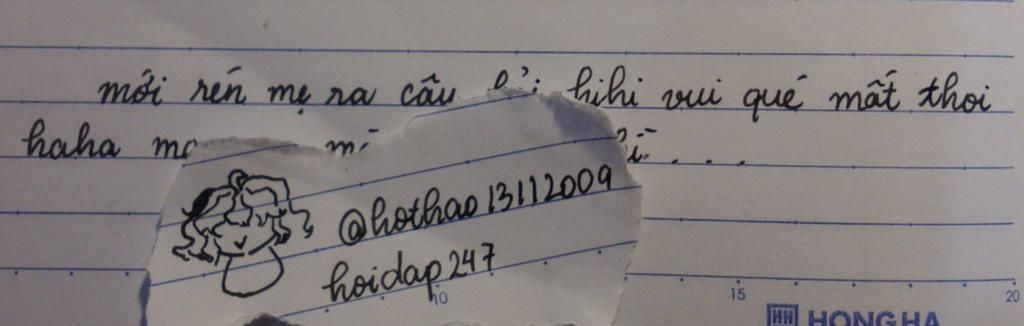 mới rén mẹ ra câu hihi vui qué mất thoi
haha
@hothao13112009
hoidap247
10 15 20
HH HONG HA